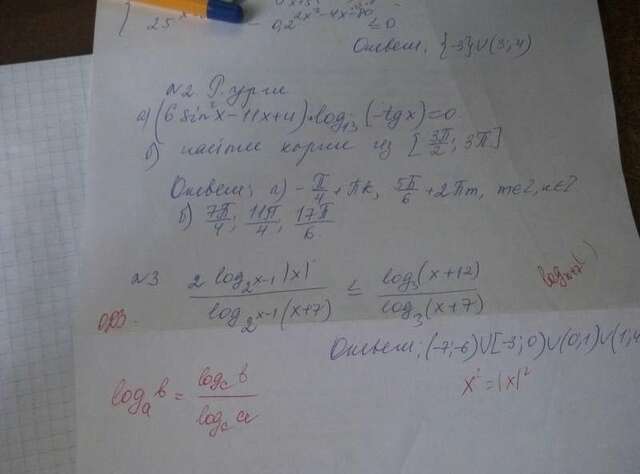 25 0,2^{2x²-4x-80} ≤ 0
Ответ: {-3}∪(3;4)
№2. Р. ур-ие
а) (6 sin²x - 11x + 4)·log₁₃(-tgx)=0.
б) найти корни из [3π/2; 3π]
Ответ: а) -π/4 + πk, 5π/6 + 2πm, m∈Z, k∈Z
б) 7π/4; 11π/4; 17π/6.
№3 2 log_{2^{x-1}}|x| / log_{2^{x-1}}(x+7) ≤ log₃(x+12) / log₃(x+7)
log_{x+7}( )
ОДЗ.
Ответ: (-7;-6)∪[-3;0)∪(0;1)∪(1;4
log_a b = log_c b / log_c a
x² = |x|²